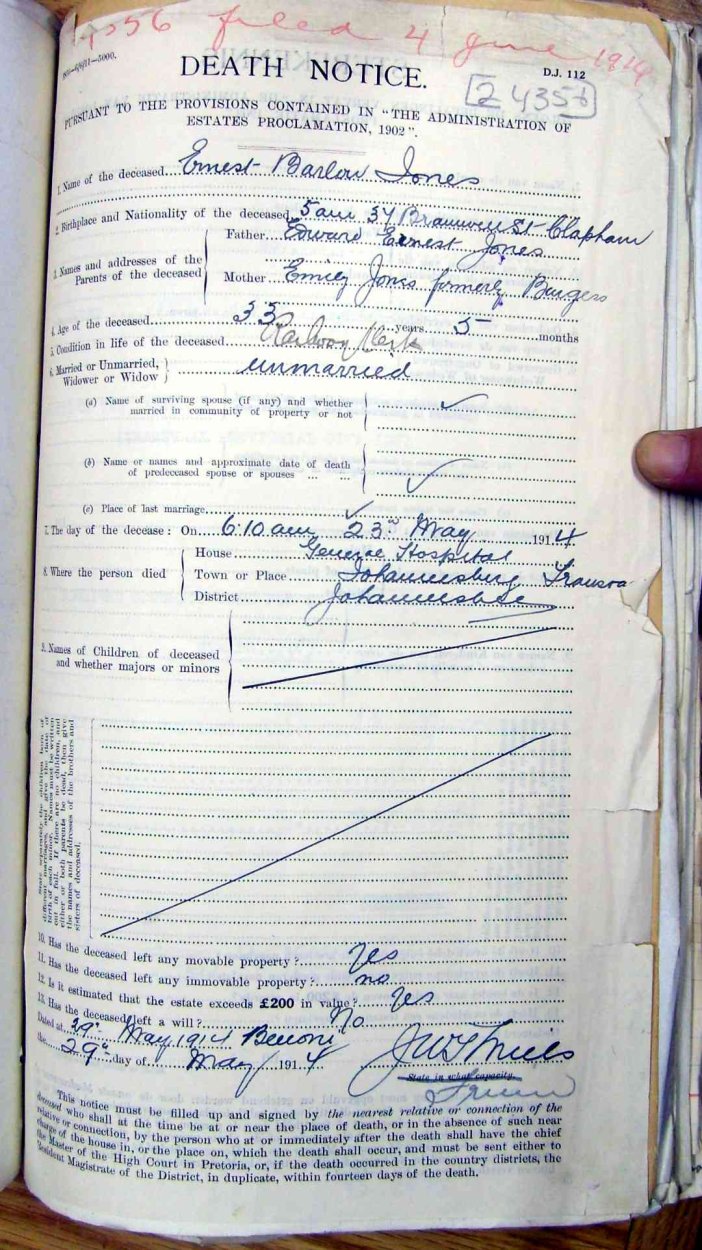 4356 filed 4 June 1914
DEATH NOTICE.
D.J. 112
24356
PURSUANT TO THE PROVISIONS CONTAINED IN "THE ADMINISTRATION OF
ESTATES PROCLAMATION, 1902".
1. Name of the deceased Ernest Barlow Jones
2. Birthplace and Nationality of the deceased 5 am 37 St Clapham
3. Names and addresses of the Parents of the deceased
Father Edward Ernest Jones
Mother Emily Jones formerly Burgess
4. Age of the deceased 33 years 5 months
5. Condition in life of the deceased Railway Clerk
6. Married or Unmarried, Widower or Widow unmarried
(a) Name of surviving spouse (if any) and whether
married in community of property or not ✓
(b) Name or names and approximate date of death
of predeceased spouse or spouses ... ... ✓
(c) Place of last marriage ✓
7. The day of the decease: On 6.10 am 23rd May 1914
8. Where the person died
House General Hospital
Town or Place Johannesburg Transva
District Johannesburg
9. Names of Children of deceased
and whether majors or minors
State separately the children born of
different marriages, and give the date of
birth of each minor. Names must be written
out in full. If there are no children, and
either or both parents be dead, then give
the names and addresses of the brothers and
sisters of deceased.
10. Has the deceased left any movable property? Yes
11. Has the deceased left any immovable property? no
12. Is it estimated that the estate exceeds £200 in value? Yes
13. Has the deceased left a will? No
Dated at 29th May 1914 Benoni
the 29th day of May 1914
State in what capacity.
This notice must be filled up and signed by the nearest relative or connection of the
deceased who shall at the time be at or near the place of death, or in the absence of such near
relative or connection, by the person who at or immediately after the death shall have the chief
charge of the house in, or the place on, which the death shall occur, and must be sent either to
the Master of the High Court in Pretoria, or, if the death occurred in the country districts, the
Resident Magistrate of the District, in duplicate, within fourteen days of the death.